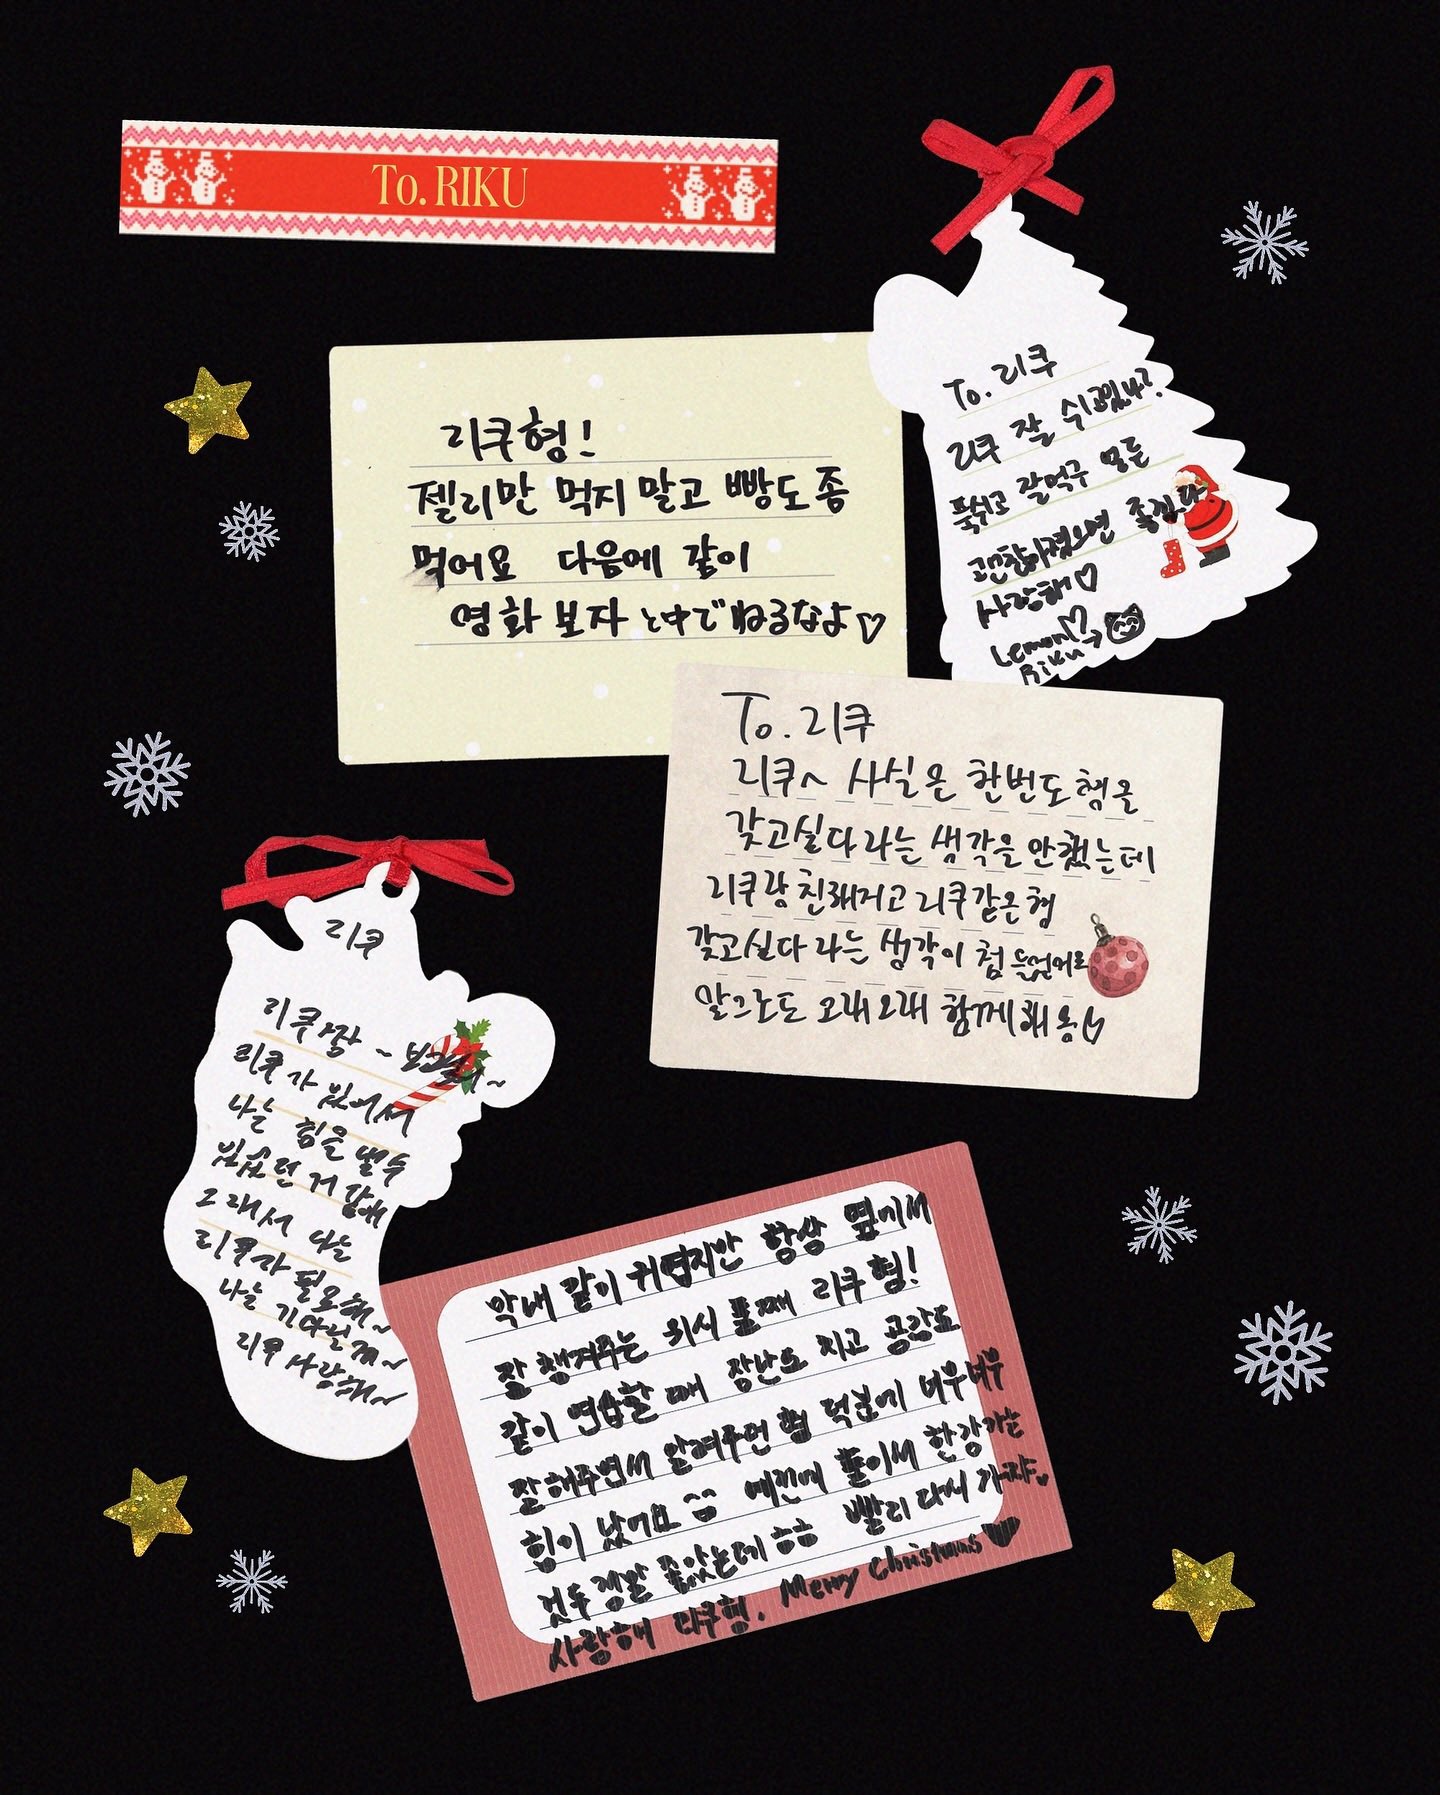 To. RIKU
리쿠형!
젤리만 먹지 말고 빵도 좀
먹어요 다음에 같이
영화 보자 と中でねるなよ♡
To. 리쿠
리쿠 잘 쉬고있나?
푹쉬고 잘먹구 몸도
괜찮아졌으면 좋겠다
사랑해♡
Lemon♡
Riku→
To. 리쿠
리쿠~ 사실은 한번도 형을
갖고싶다라는 생각을 안했는데
리쿠랑 친해지고 리쿠같은 형
갖고싶다라는 생각이 첨 들었어
앞으로도 오래오래 함께해용♡
리쿠
리쿠짱~
리쿠가 있어서
나는 힘을 낼수
있었던 거 같애
그래서 나는
리쿠가 필요해~
나는 기다닐게~
리쿠 사랑해~
막내 같이 귀엽지만 항상 옆에서
잘 챙겨주는 위시 둘째 리쿠형!
같이 연습할 때 장난도 치고 공감도
잘해주면서 알려주던 형 덕분에 너무너무
힘이 났어요 예전에 둘이서 한강가는
것두 정말 좋았는데 ㅎㅎ 빨리 다시 가쟈♥
사랑해 리쿠형. Merry Christmas♥